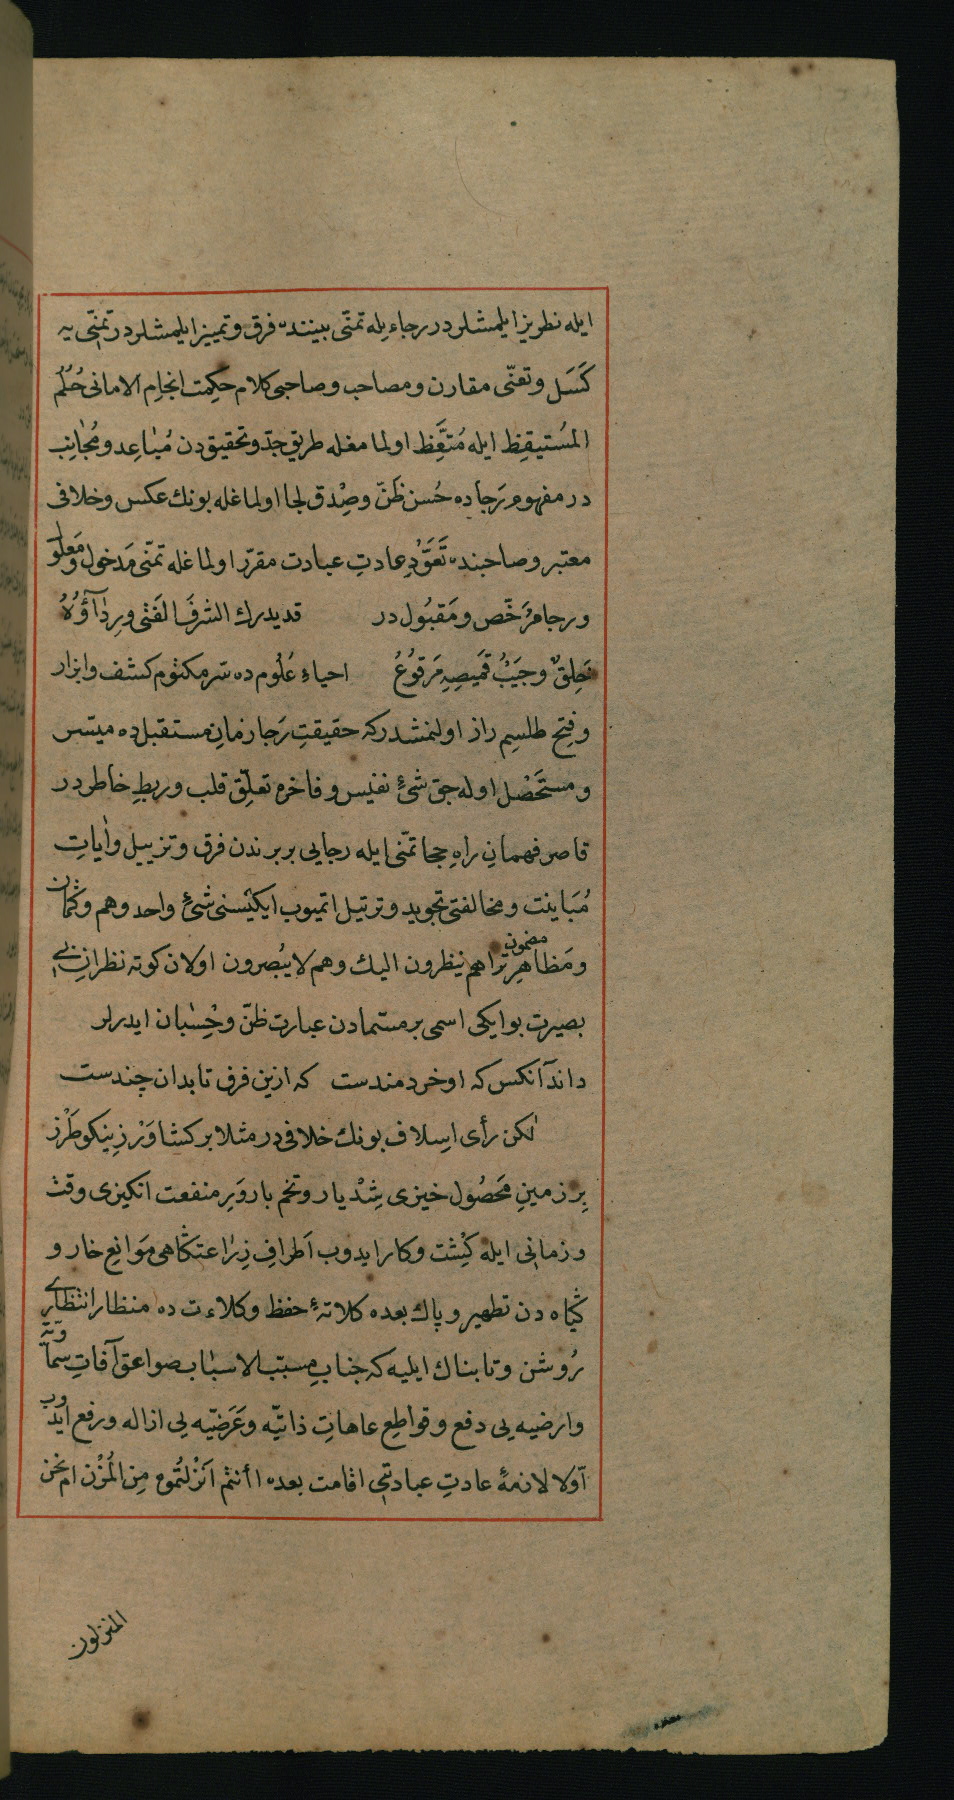 ايله نطريز ايلمشلر در رجاء يله تمنّى بيننده فرق و تمييز ايلمشلر در تمنّى يه
كَسَل و تعنّى مقارن و مصاحب و صاحبى كلام حكمت انجام الامانى حُلُم
المُستيقِظ ايله مُتّعَظ اولمامغله طريق جدّ و تحقيق دن مُباعِد و مُجانِب
در مفهوم رَجاده حُسن ظَنّ و صِدْق لجا اولماغله بونك عكس و خلافى
معتبر و صاحبنده تَعَوُّدِ عادتِ عبادت مقرّر اولماغله تمنّى مَدخول و مَعلول
و رجا مُرَخّص و مَقبُول در قد يدرك الشرفَ الفتى و رِدَآؤُهُ
خَلِقٌ و جَيْبُ قَمِيصِهِ مَرقُوعُ احياءِ عُلُوم ده سرّ مكتوم كشف و ابزار
و فتحِ طلسِم راز اولنمشدر كه حقيقتِ رَجا زمانِ مستقبل ده ميسّر
و مستَحْصَل اوله جق شئِ نفيس و فاخره تعلّقِ قلب و ربطِ خاطر در
قاصر فهمانِ راهِ حجا تمنّى ايله رجايى بربرندن فرق و تزييل و اٰياتِ
مُبَاينت و مخالفتى تجويد و ترتيل اتميوب ايكيسنى شئِ واحد وهم و كمان
و مَظاهِرِ مضمون تراهم ينظرون اليك وهم لا يُبْصرون اولان كوته نظرانِ بى
بصيرت بو ايكى اسمى بر مسمّادن عبارت ظنّ و حُِسْبان ايدرلر
داند آنكس كه او خردمندست كه ازين فرق تا بدان چندست
لٰكن رأى اسلاف بونك خلافى در مثلا بر كشاوَرْزِ نيكو طَرْز
بِر زمينِ مَحصُول خيزى شِدْيار و تخم بار و بَرِ منفعت انكيزى وقت
و زمانى ايله كِشْت و كار ايدوب اَطرافِ زِرٰاعتكاهى مَوَانِعِ خار و
كياه دن تطهير و پاك بعده كلاتهٔ حفظ و كلاءت ده منظار انتظارى
رُوشن و تابناك ايليه كه جنابِ مسبّب الاسبٰاب صواعق آفاتِ سماويّه
و ارضيه يى دفع و قواطِعِ عاهاتِ ذاتيّه و عَرَضيّه يى ازاله و رفع ايدوب
اوّلا لازمهٔ عادتِ عبادتى اقامت بعده ءاأنتم اَنْزلتُموه مِن المُزْن ام نحن
المنزلون